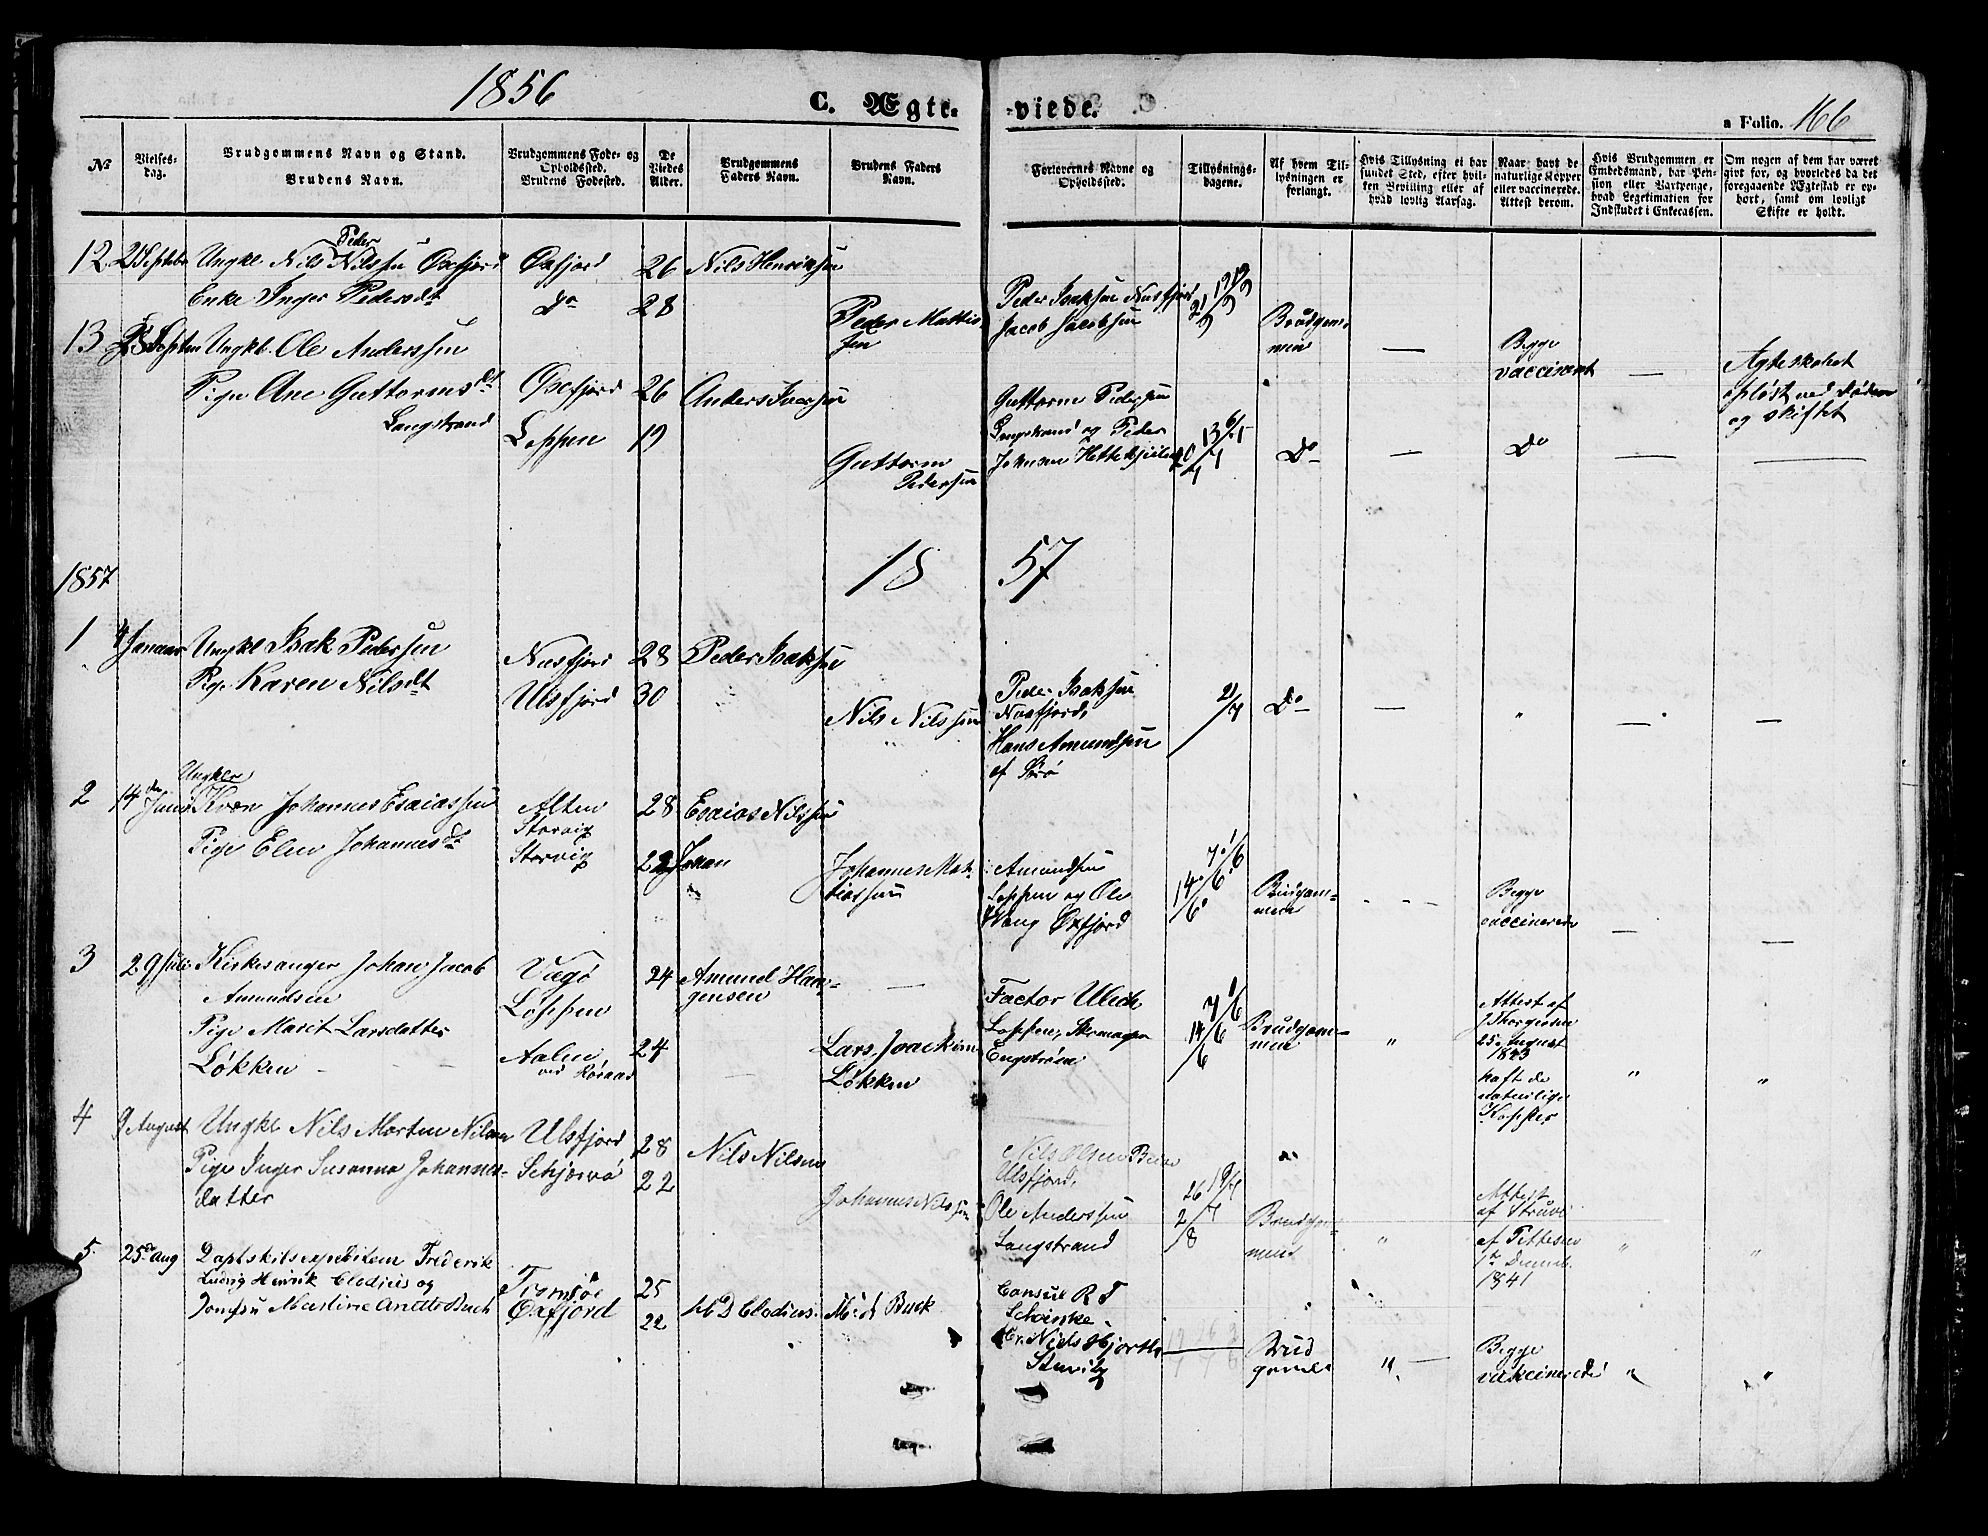 1856
C. Ægte-
-viede.
a Folio. 166
No
Vielses-
dag.
Brudgommens Navn og Stand.
Brudens Navn.
Brudgommens Føde- og
Opholdssted.
Brudens Fødested.
De
Viedes
Alder.
Brudgommens
Faders Navn.
Brudens Faders
Navn.
Forlovernes Navne og
Opholdssted.
Tillysnings-
dagene.
Af hvem Til-
lysningen er
forlangt.
Hvis Tillysning ei har
fundet Sted, efter hvil-
ken Bevilling eller af
hvad lovlig Aarsag.
Naar havt de
naturlige Kopper
eller vaccinerede.
Attest derom.
Hvis Brudgommen er
Embedsmand, har Pen-
sion eller Vartpenge,
hvad Legetimation for
Indskudet i Enkecassen.
Om nogen af dem har været
givt for, og hvorledes da det
foregaaende Ægteskab er op-
hørt, samt om lovligt
Skifte er holdt.
12
Ungkl. Nils Peder Nilssen Oxefjord
Enke Inger Pedersdt
Oxfjord
Do
26
28
Nils Henriksen
Peder Mattis
sen
Peder Isaksen Nusfjord
Jacob Jacobsen
Brudgom
men
Begge
vaccineret
Ægteskabet
opløst ved Døden
og skiftet
13
Ungkl. Ole Anderssen
Pige Ane Guttormsdt
Langstrand
Oxefjord
Loppen
26
19
Anders Iversen
Guttorm
Pedersen
Guttorm Pedersen
Langstrand og Peder
Johnsen
Do
Do
1857
18 57
1
4 Januar
Ungkl Isak Pedersen
Pige Karen Nilsdt
Nusfjord
Ulsfjord
28
30
Peder Isaksen
Nils Nilssen
Peder Isaksen
Nusfjord,
Hans Amundsen
af
Do
2
14de Juni
Ungkar
Kvæn Johannes Esaiassen
Pige Elen Johannesdt
Alten
Storvig
Storvig
28
22
Esaias Nilssen
Johan
Johannes Mat
tissen
Amundsen
Loppen og Ole
Wang Oxfjord
7/6
14/6
Brudgom-
men
Begge
vaccinerede
3
29 Juli
Kirkesanger Johan Jacob
Amundsen
Pige Marit Larsdatter
Løkken
Vægø
Loppen
Aalen,
ved Røraas
24
24
Amund Haa-
gensen
Lars Joackim
Løkken
Factor Ulich
Loppen, Skomager
Engstrøm
7/6
14/6
Brudgom-
men
Attest af
25 August
1843
haft de
naturlige
Kopper
4
9 August
Ungkl Nils Morten Nilsen
Pige Inger Susanna Johannes-
datter
Ulsfjord
Schjervø
28
22
Nils Nilsen
Johannes Nilssen
Nils Olsen
Ulsfjord,
Ole Anderssen
Langstrand
2/8
Brudgom-
men
Attest
af
af
Decemb.
1841
5.
25de Aug
Dapskibsexpeditem Frederik
Ludvig Henrik Clodius og
Jomfru Martine Anette Buck
Tromsøe
Oxfjord
25
22
Clodius.
M. D. Buck
Consul
Hr. Niels Hjorth
Storvig
Brud
gomen
Begge
vakcinerede